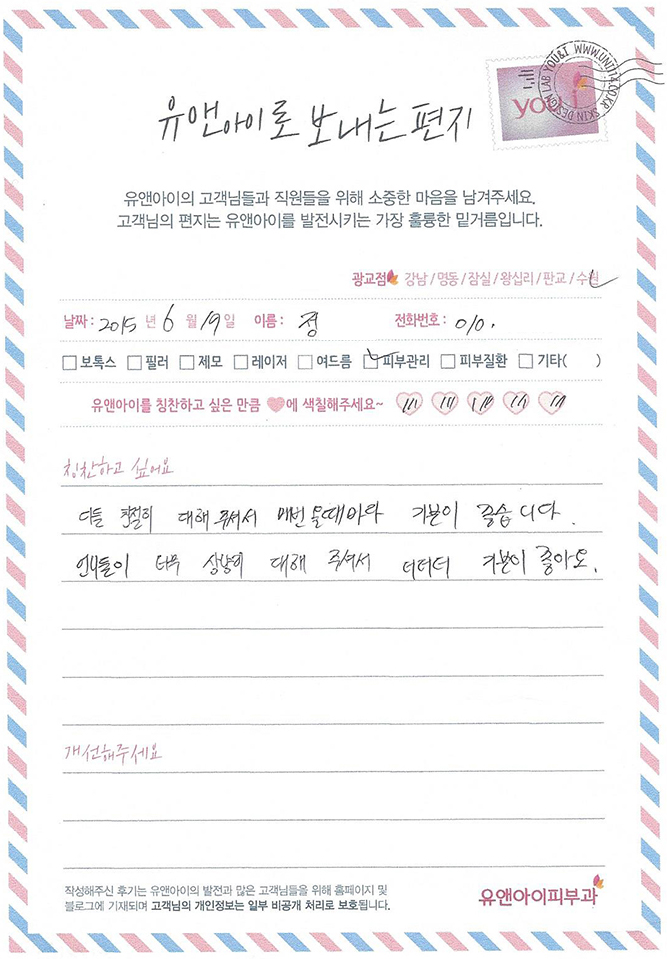 SKIN DESIGN LAB YOU&I WWW.UNI114.CO.KR
you i
유앤아이로 보내는 편지
유앤아이의 고객님들과 직원들을 위해 소중한 마음을 남겨주세요.
고객님의 편지는 유앤아이를 발전시키는 가장 훌륭한 밑거름입니다.
광교점 강남 / 명동 / 잠실 / 왕십리 / 판교 / 수원
날짜 : 2015 년 6 월 19 일 이름 : 정 전화번호 : 010.
보톡스 필러 제모 레이저 여드름 피부관리 피부질환 기타( )
유앤아이를 칭찬하고 싶은 만큼 에 색칠해주세요~
칭찬하고 싶어요
다들 친절히 대해 주셔서 매번 올때마다 기분이 좋습니다.
언니들이 너무 상냥히 대해 주셔서 더더더 기분이 좋아요.
개선해주세요
작성해주신 후기는 유앤아이의 발전과 많은 고객님들을 위해 홈페이지 및
블로그에 기재되며 고객님의 개인정보는 일부 비공개 처리로 보호됩니다.
유앤아이피부과